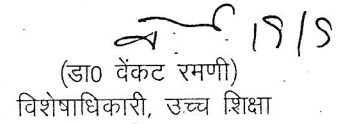 19/9
(डा0 वेंकट रमणी)
विशेषाधिकारी, उच्च शिक्षा